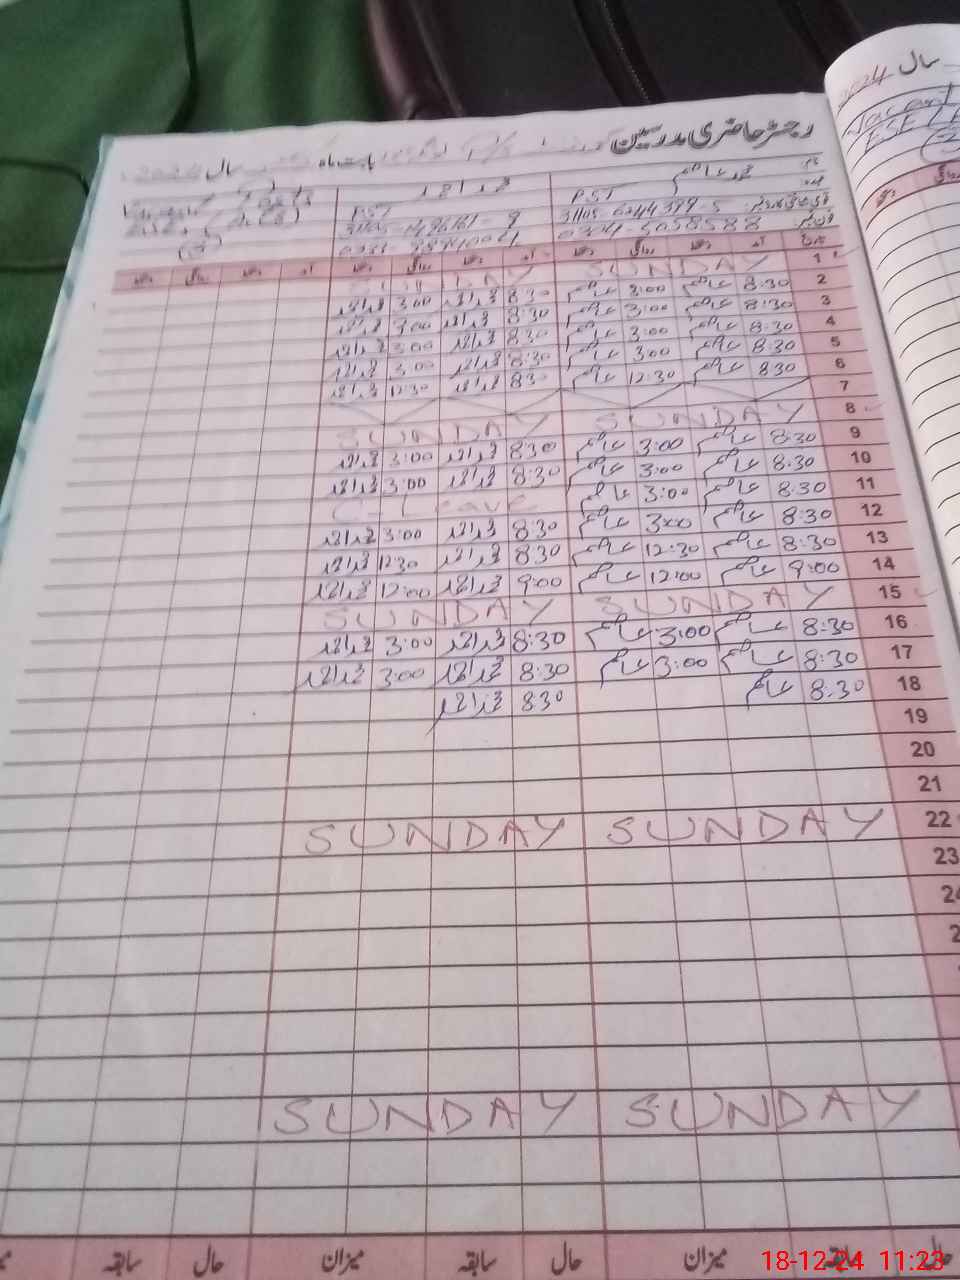 سال 2024
رجسٹر حاضری مدرسین
بابت ماہ
سال 2024
نام محمد عاصم محمد احمد
عہدہ PST PST
31105-6244399-5
0304-5058588
تاریخ آمد دستخط روانگی دستخط آمد دستخط روانگی دستخط آمد دستخط روانگی دستخط
1 SUNDAY SUNDAY
2 8:30 عاصم 3:00 عاصم 8:30 محمد احمد 3:00 محمد احمد
3 8:30 عاصم 3:00 عاصم 8:30 محمد احمد 3:00 محمد احمد
4 8:30 عاصم 3:00 عاصم 8:30 محمد احمد 3:00 محمد احمد
5 8:30 عاصم 3:00 عاصم 8:30 محمد احمد 3:00 محمد احمد
6 8:30 عاصم 12:30 عاصم 8:30 محمد احمد 12:30 محمد احمد
7
8 SUNDAY SUNDAY
9 8:30 عاصم 3:00 عاصم 8:30 محمد احمد 3:00 محمد احمد
10 8:30 عاصم 3:00 عاصم 8:30 محمد احمد 3:00 محمد احمد
11 8:30 عاصم 3:00 عاصم C-Leave
12 8:30 عاصم 3:00 عاصم 8:30 محمد احمد 3:00 محمد احمد
13 8:30 عاصم 12:30 عاصم 8:30 محمد احمد 12:30 محمد احمد
14 9:00 عاصم 12:00 عاصم 9:00 محمد احمد 12:00 محمد احمد
15 SUNDAY SUNDAY
16 8:30 عاصم 3:00 عاصم 8:30 محمد احمد 3:00 محمد احمد
17 8:30 عاصم 3:00 عاصم 8:30 محمد احمد 3:00 محمد احمد
18 8:30 عاصم 8:30 محمد احمد
19
20
21
22 SUNDAY SUNDAY
23
24
2
SUNDAY SUNDAY
حال سابقہ میزان حال سابقہ میزان حال سابقہ
18-12-24 11:23